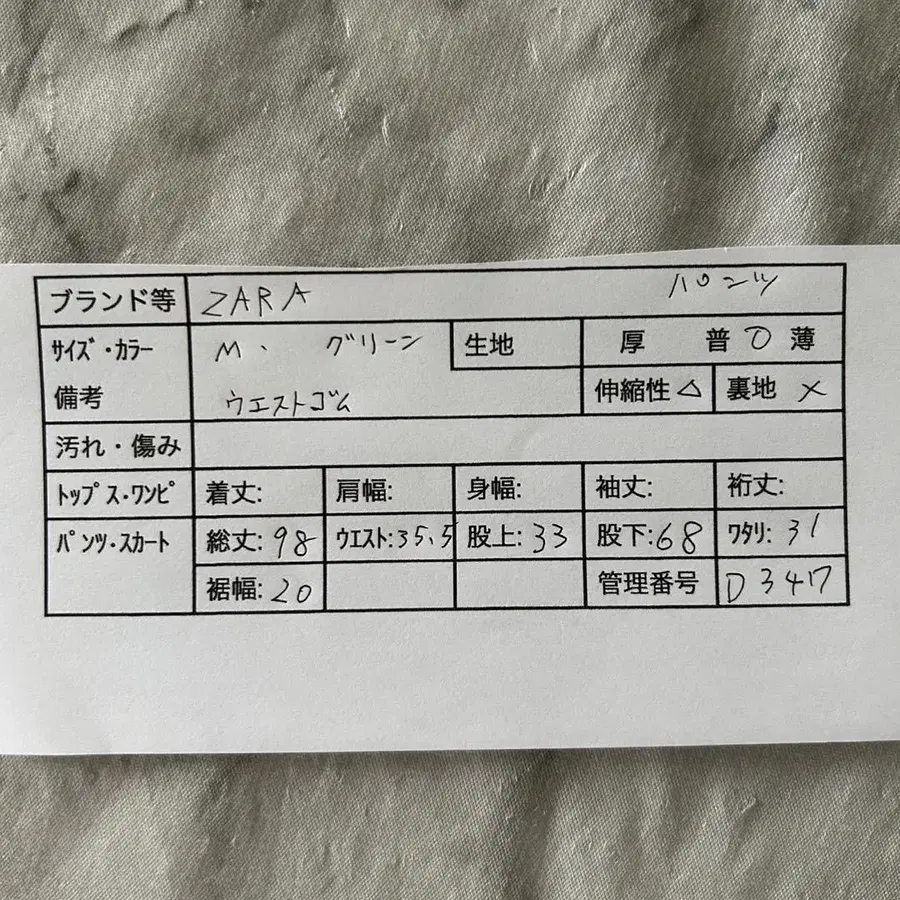 ブランド等 ZARA パンツ
サイズ・カラー M. グリーン 生地 厚 普 O 薄
備考 ウエストゴム 伸縮性 △ 裏地 ×
汚れ・傷み
トップス・ワンピ 着丈: 肩幅: 身幅: 袖丈: 裄丈:
パンツ・スカート 総丈:98 ウエスト:35.5 股上:33 股下:68 ワタリ:31
裾幅:20 管理番号 D347